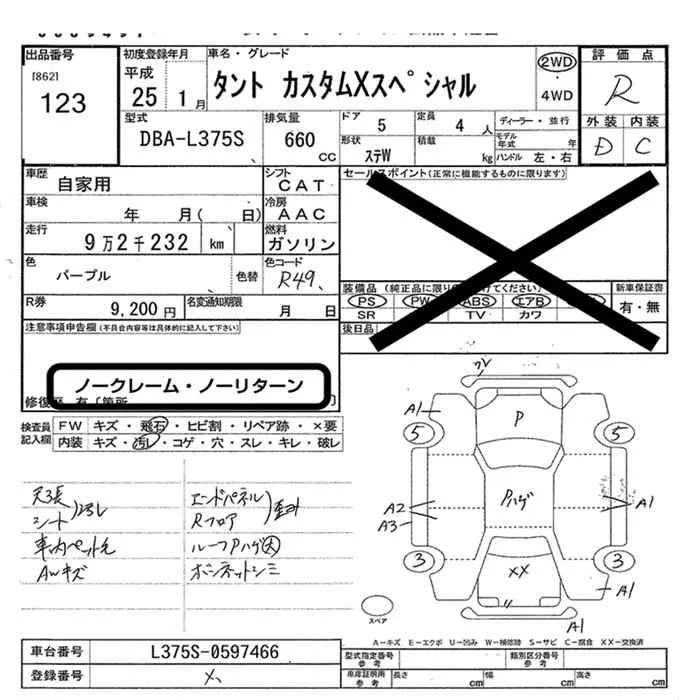 出品番号
[862]
123
初度登録年月
平成
25 1月
車名・グレード
タント カスタムXスペシャル
2WD
4WD
評価点
R
外装 内装
D C
型式
DBA-L375S
排気量
660
CC
ドア
5
定員
4 人
形状
ステW
積載
kg
ディーラー・並行
モデル年式 年
ハンドル 左・右
車歴
自家用
シフト
CAT
車検
年 月( 日)
冷房
AAC
走行
9万2千232 km
燃料
ガソリン
色
パープル
色替
色コード
R49
R券
9,200円
名変通知期限
月 日
セールスポイント(正常に機能するものに限ります)
装備品
PS PW ABS エアB
SR TV カワ
新車保証書
有・無
後日品
注意事項申告欄(不具合内容等は具体的に記入して下さい)
ノークレーム・ノーリターン
検査員記入欄
FW キズ・飛石・ヒビ割・リペア跡・×要
内装 キズ・汚レ・コゲ・穴・スレ・キレ・破レ
天張
シート
汚レ
車内ペット毛
AWキズ
エンドパネル
Rフロア
ルーフPハゲ大
ボンネットシミ
A1
P
5
5
Pハゲ
A2
A3
A1
3
3
XX
A1
A1
スペア
A-キズ E-エクボ U-凹み W-補修跡 S-サビ C-腐食 XX-交換済
車台番号
L375S-0597466
登録番号
型式指定番号
参考
類別区分番号
参考
車庫証明用
参考
長さ cm
幅 cm
高さ cm